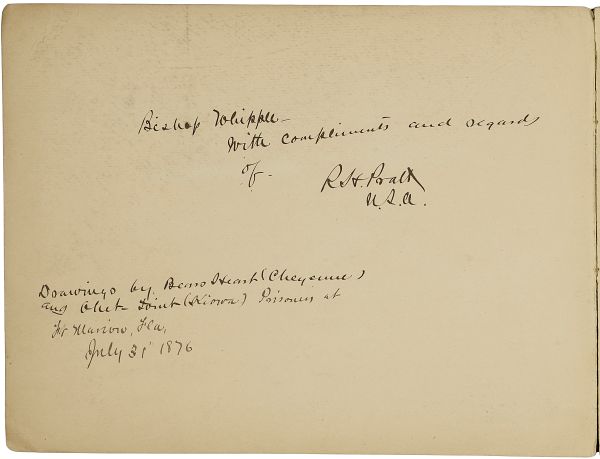 Bishop Whipple -
With compliments and regards
of -
R. H. Pratt
U.S.A.
Drawings by Bears Heart (Cheyenne)
and Ohet-toint (Kiowa) Prisoners at
Ft Marion, Fla,
July 31 1876